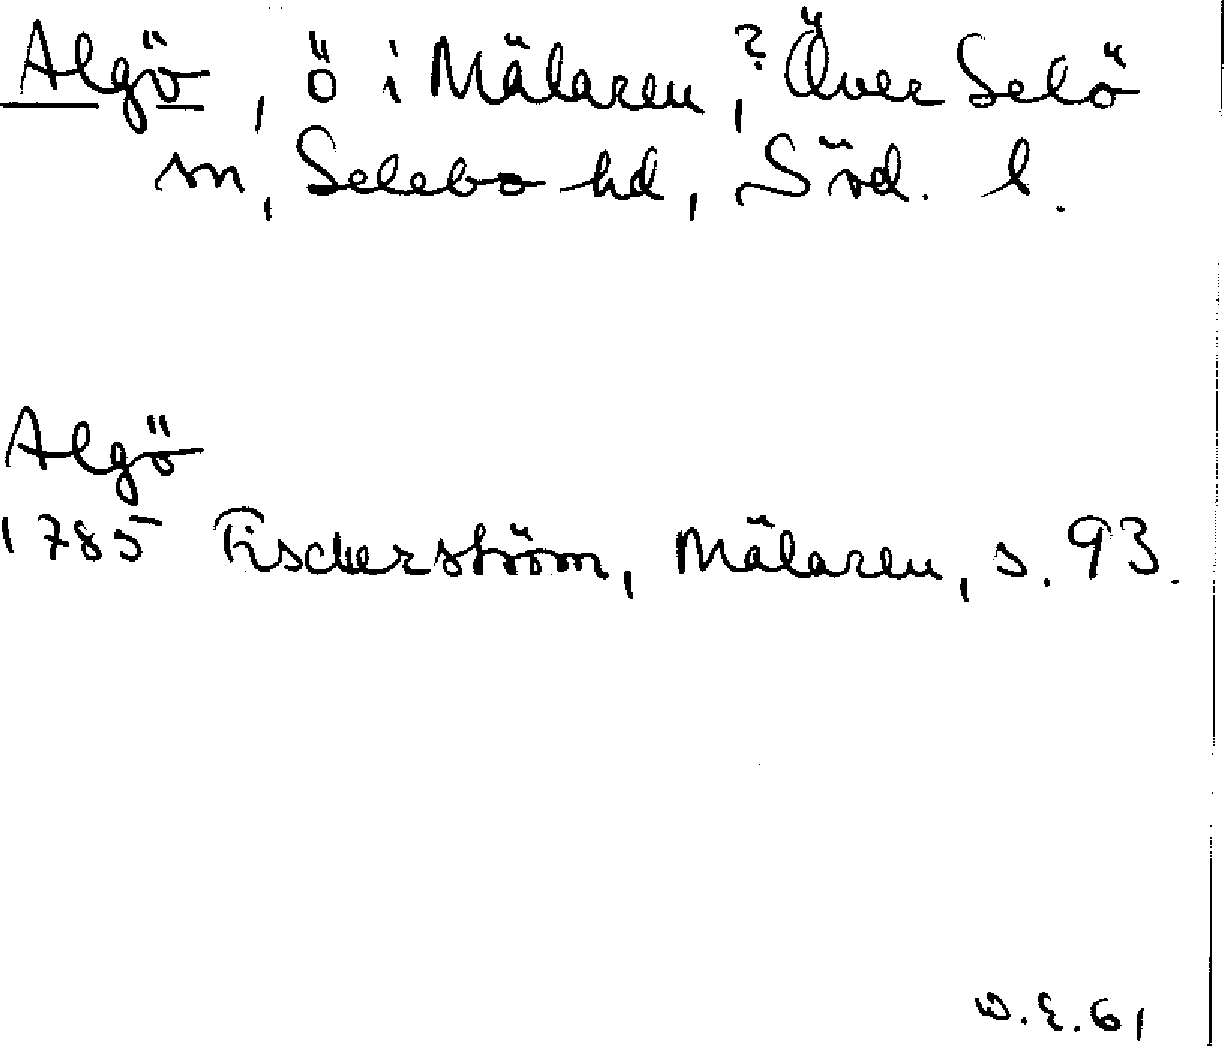 Algö, ö i Mälaren, ?Över Selö
sn, Selebo hd, Söd. l.
Algö
1785 Fischerström, Mälaren, s. 93.
W.E.61